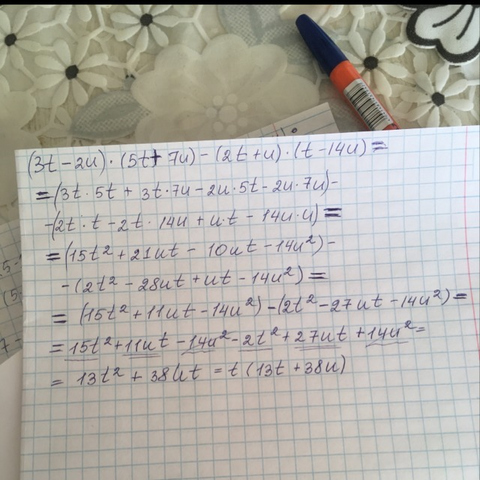 (3t-2u)·(5t+7u)-(2t+u)·(t-14u)=
=(3t·5t+3t·7u-2u·5t-2u·7u)-
-(2t·t-2t·14u+u·t-14u·u)=
=(15t²+21ut-10ut-14u²)-
-(2t²-28ut+ut-14u²)=
=(15t²+11ut-14u²)-(2t²-27ut-14u²)=
=15t²+11ut-14u²-2t²+27ut+14u²=
=13t²+38ut=t(13t+38u)